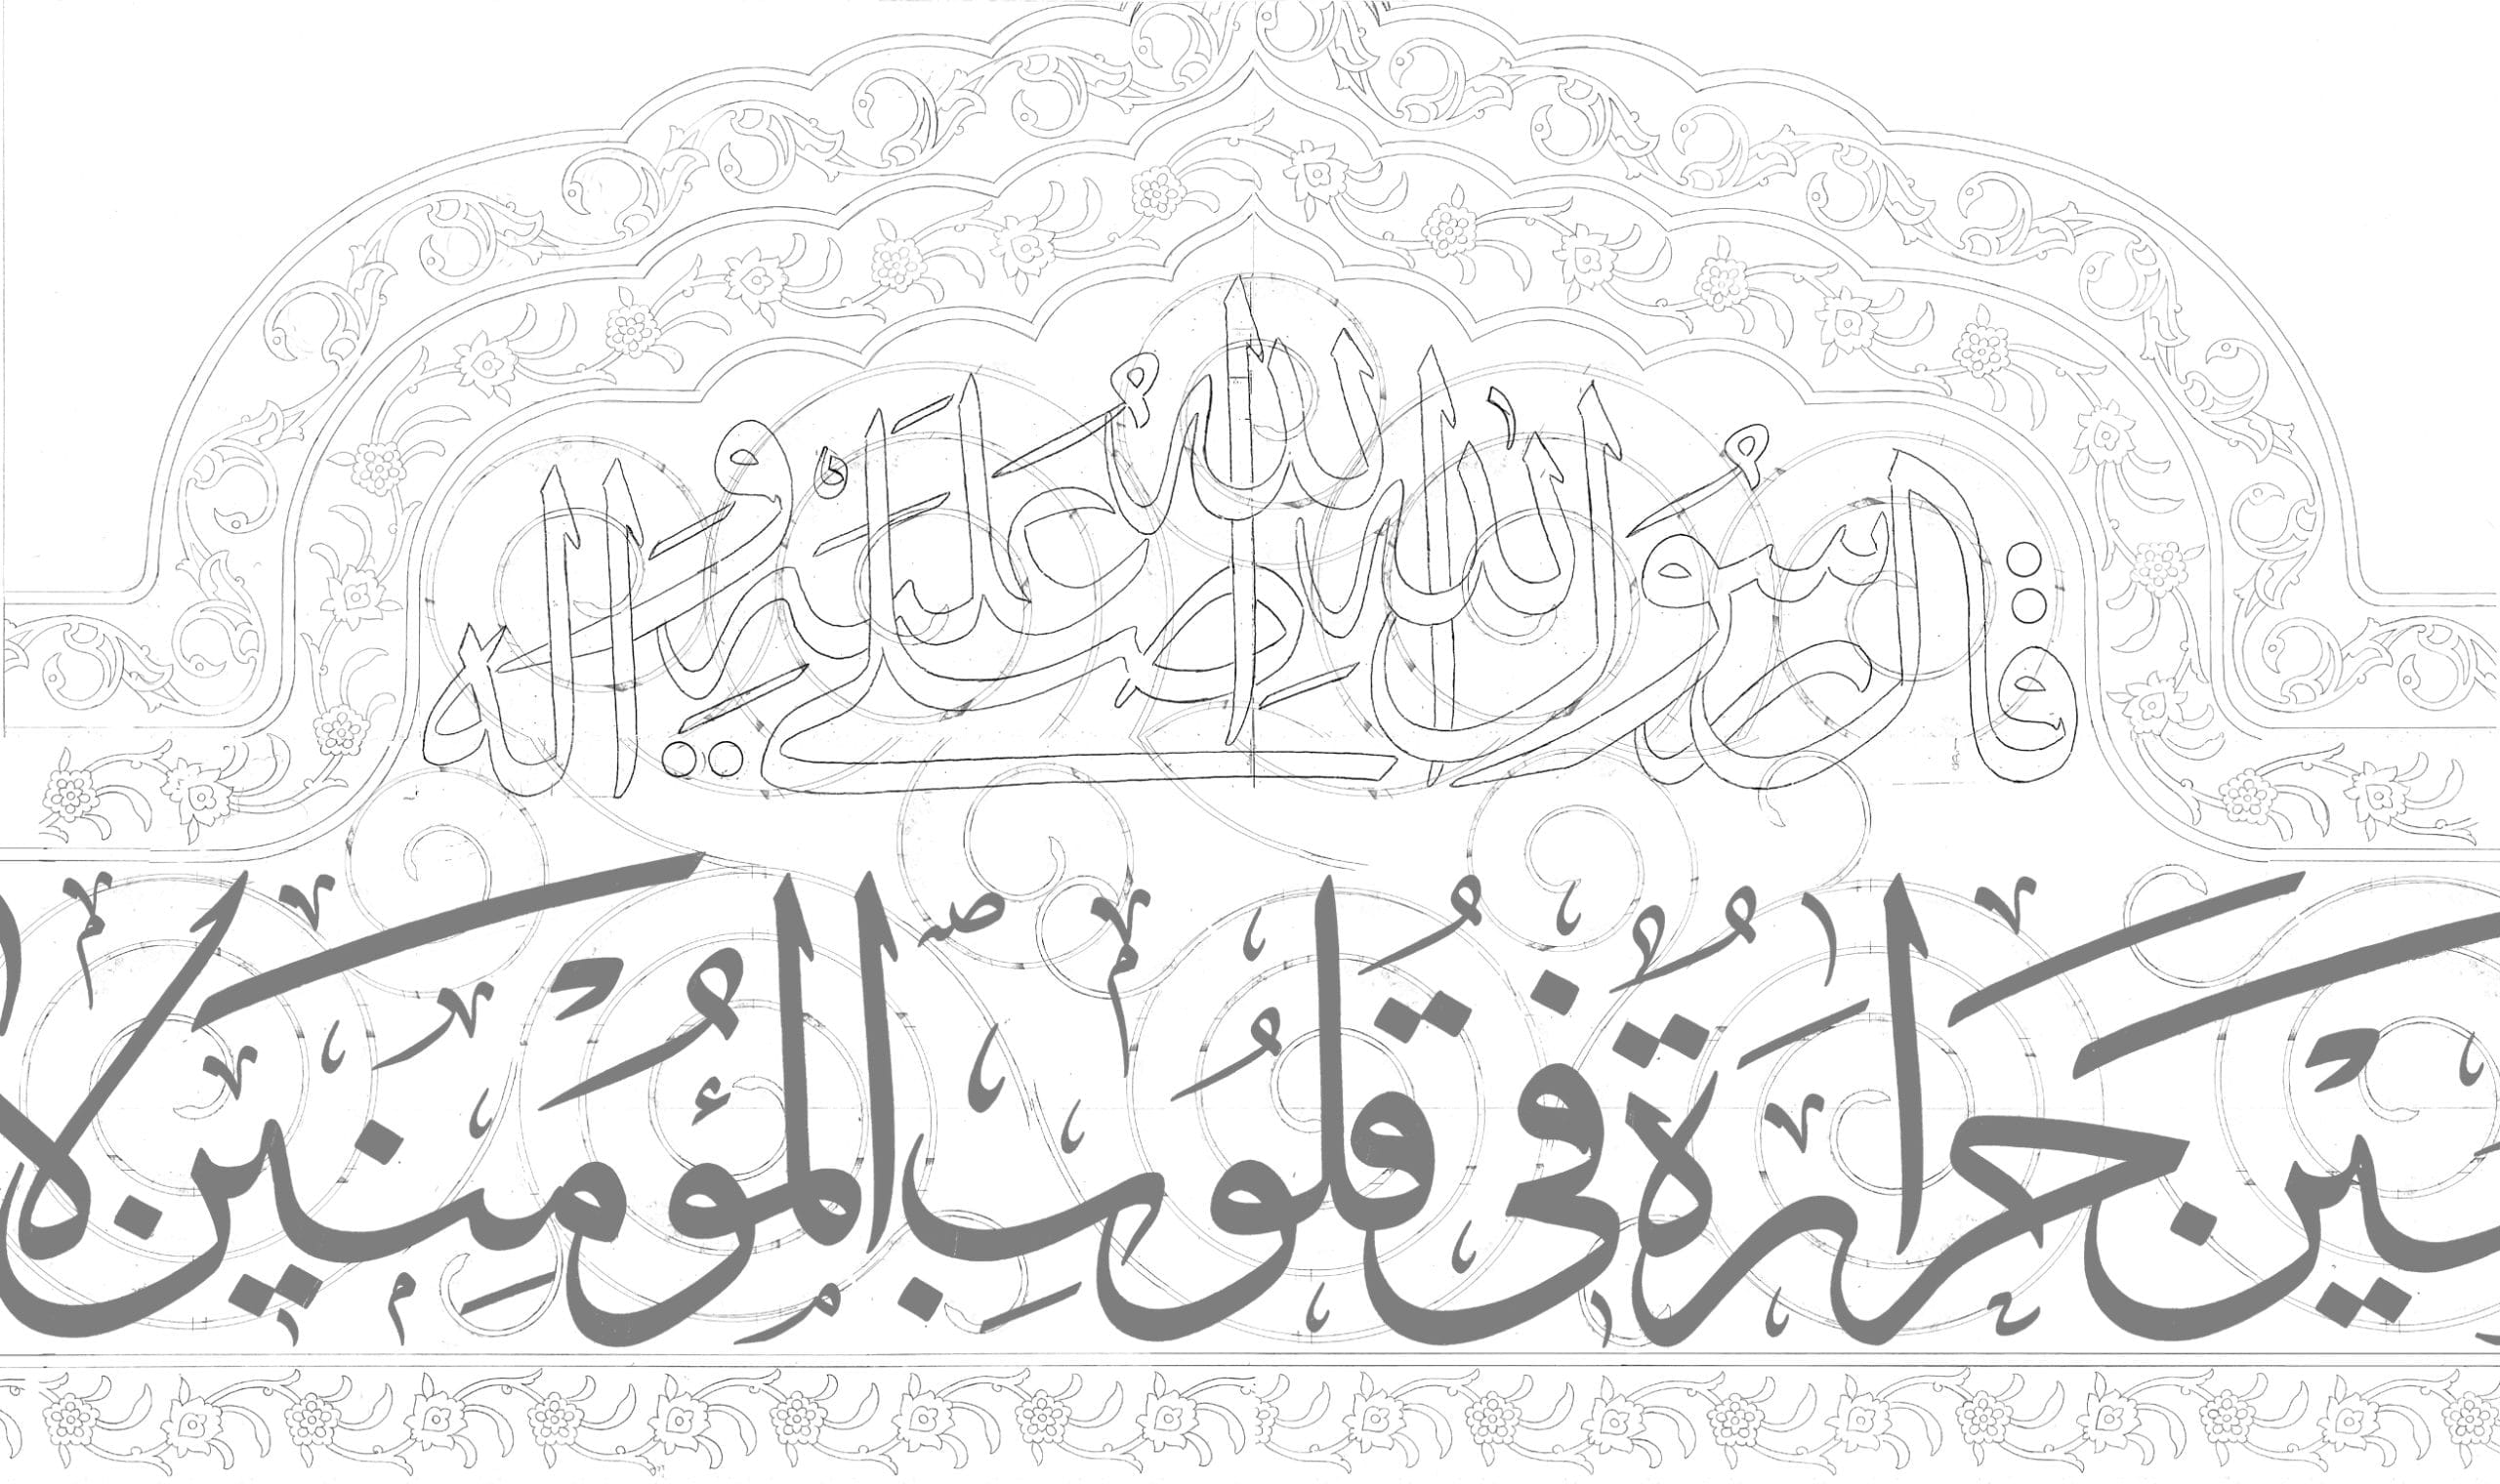 قال رسول الله صلى الله عليه وآله
حَرارَةٌ في قُلُوبِ المُؤْمِنينَ لا